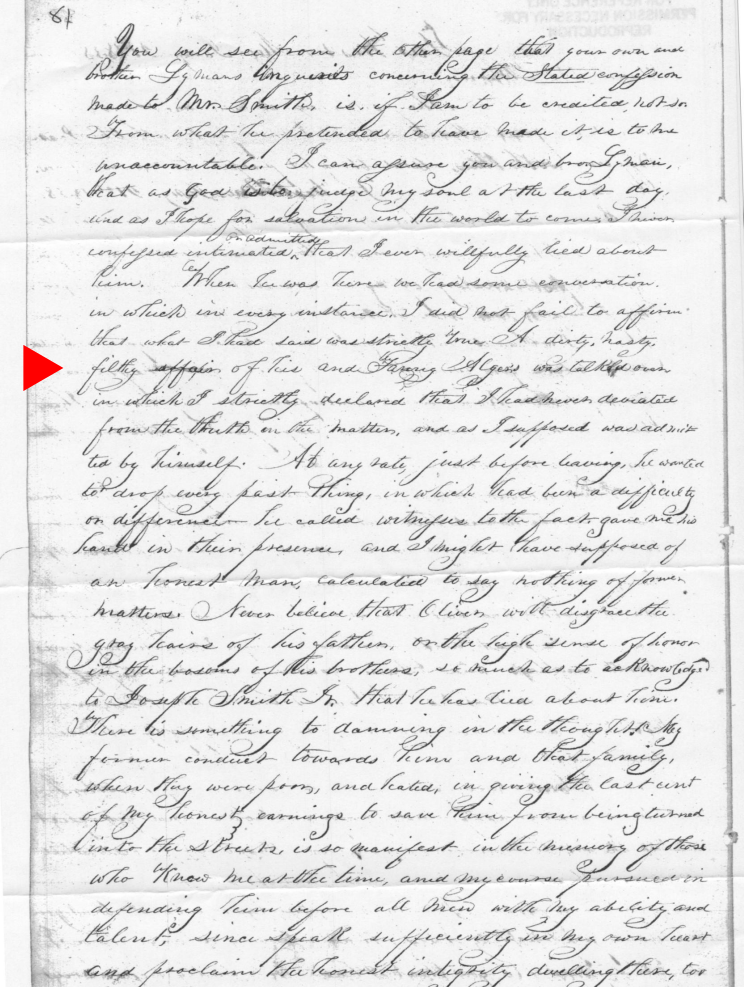 81
FOR REFERENCE ONLY
PERMISSION NECESSARY FOR
REPRODUCTION
You will see from the other page that your own and
brother Lymans inquiries concerning the Stated confession
made to Mr. Smith, is, if I am to be credited, not so
From what he pretended to have made it, is to me
unaccountable. I can assure you and bro. Lyman,
that as God is to judge my soul at the last day,
and as I hope for salvation in the world to come, I never
confessed intimated, or admitted that I ever willfully lied about
him. When he was here we had some conversation
in which in every instance, I did not fail to affirm
that what I had said was strictly true. A dirty, nasty,
filthy affair of his and Fanny Alger's was talked over
in which I strictly declared that I had never deviated
from the truth on the matter, and as I supposed was admit
ted by himself. At any rate, just before leaving, he wanted
to drop every past thing, in which had been a difficulty
or difference he called witnesses to the fact, gave me his
hand in their presence, and I might have supposed of
an honest man, calculated to say nothing of former
matters. Never believe that Oliver will disgrace the
gray hairs of his father, or the high sense of honor
in the bosoms of his brothers, so much as to acknowledge
to Joseph Smith Jr. that he has lied about him.
There is something to damning in the thought. My
former conduct towards him and that family,
when they were poor, and hated, in giving the last cent
of my honest earnings to save him from being turned
into the streets, is so manifest in the memory of those
who knew me at the time, and my course pursued in
defending him before all men with my ability and
talent, since speak sufficiently in my own heart
and proclaim the honest integrity dwelling there, too